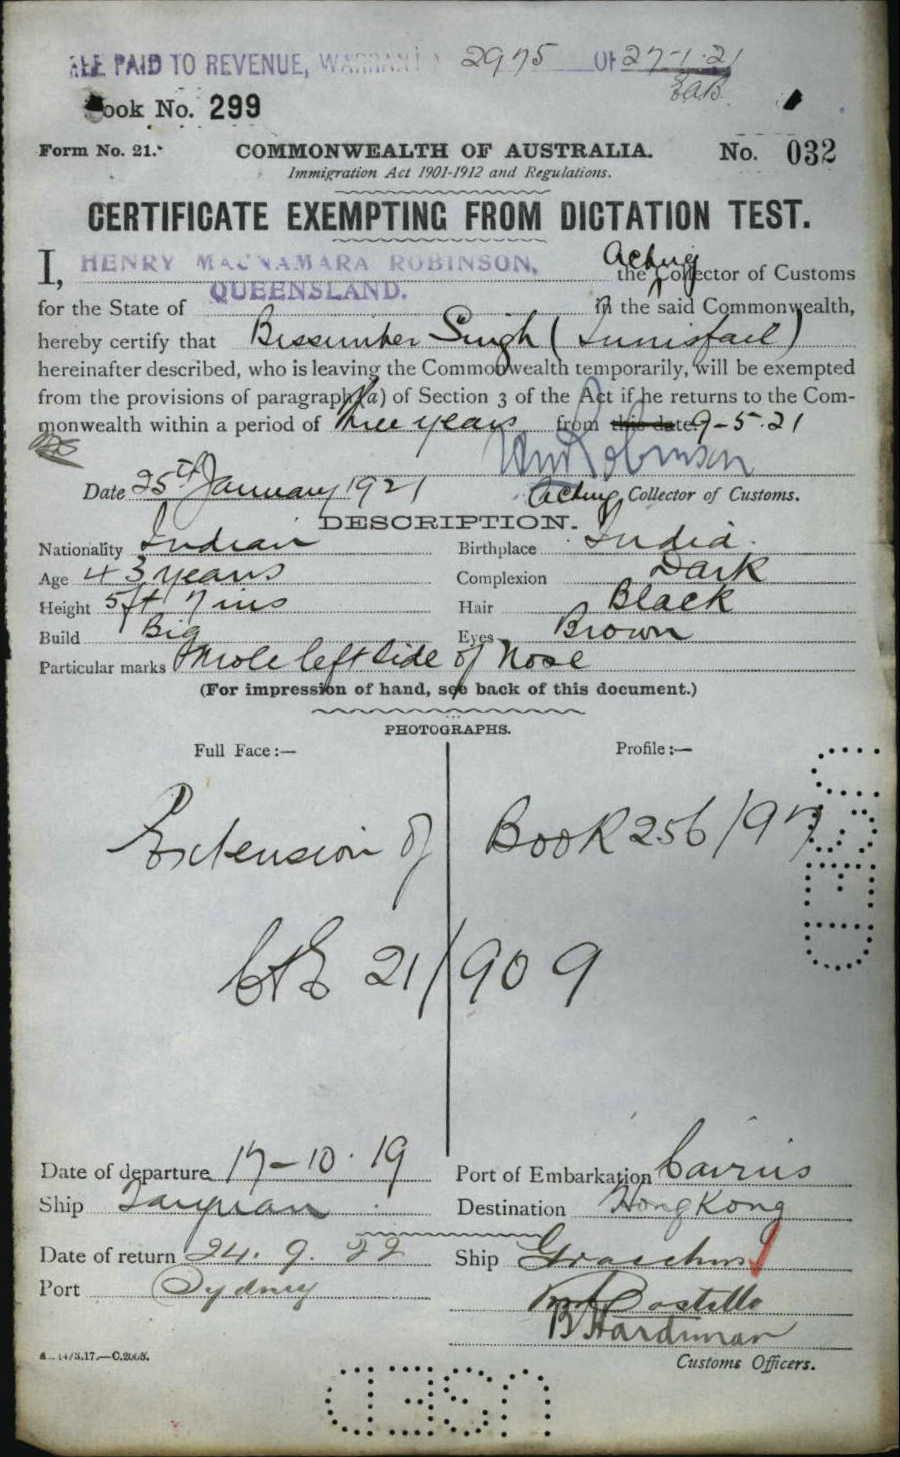 FEE PAID TO REVENUE, WARRANT 2975 OF 27-1-21
EAB
Book No. 299
Form No. 21. COMMONWEALTH OF AUSTRALIA. No. 032
Immigration Act 1901-1912 and Regulations.
CERTIFICATE EXEMPTING FROM DICTATION TEST.
I, HENRY MACNAMARA ROBINSON, the Acting Collector of Customs
for the State of QUEENSLAND. in the said Commonwealth,
hereby certify that Bissumber Singh (Innisfail)
hereinafter described, who is leaving the Commonwealth temporarily, will be exempted
from the provisions of paragraph (a) of Section 3 of the Act if he returns to the Com-
monwealth within a period of Three years from this date 9-5-21
HM Robinson
Date 25th January 1921 Acting Collector of Customs.
DESCRIPTION.
Nationality Indian Birthplace India.
Age 43 years Complexion Dark
Height 5ft 7 ins Hair Black
Build Big Eyes Brown
Particular marks Mole left side of Nose
(For impression of hand, see back of this document.)
PHOTOGRAPHS.
Full Face:— Profile:—
Extension of Book 256/97
C&E 21/909
Date of departure 17-10-19 Port of Embarkation Cairns
Ship Taiyuan Destination Hong Kong
Date of return 24.9.22 Ship Gracchus
Port Sydney
Costello
B Hardiman
Customs Officers.
14/3.17.—C.2005.
USED
USED